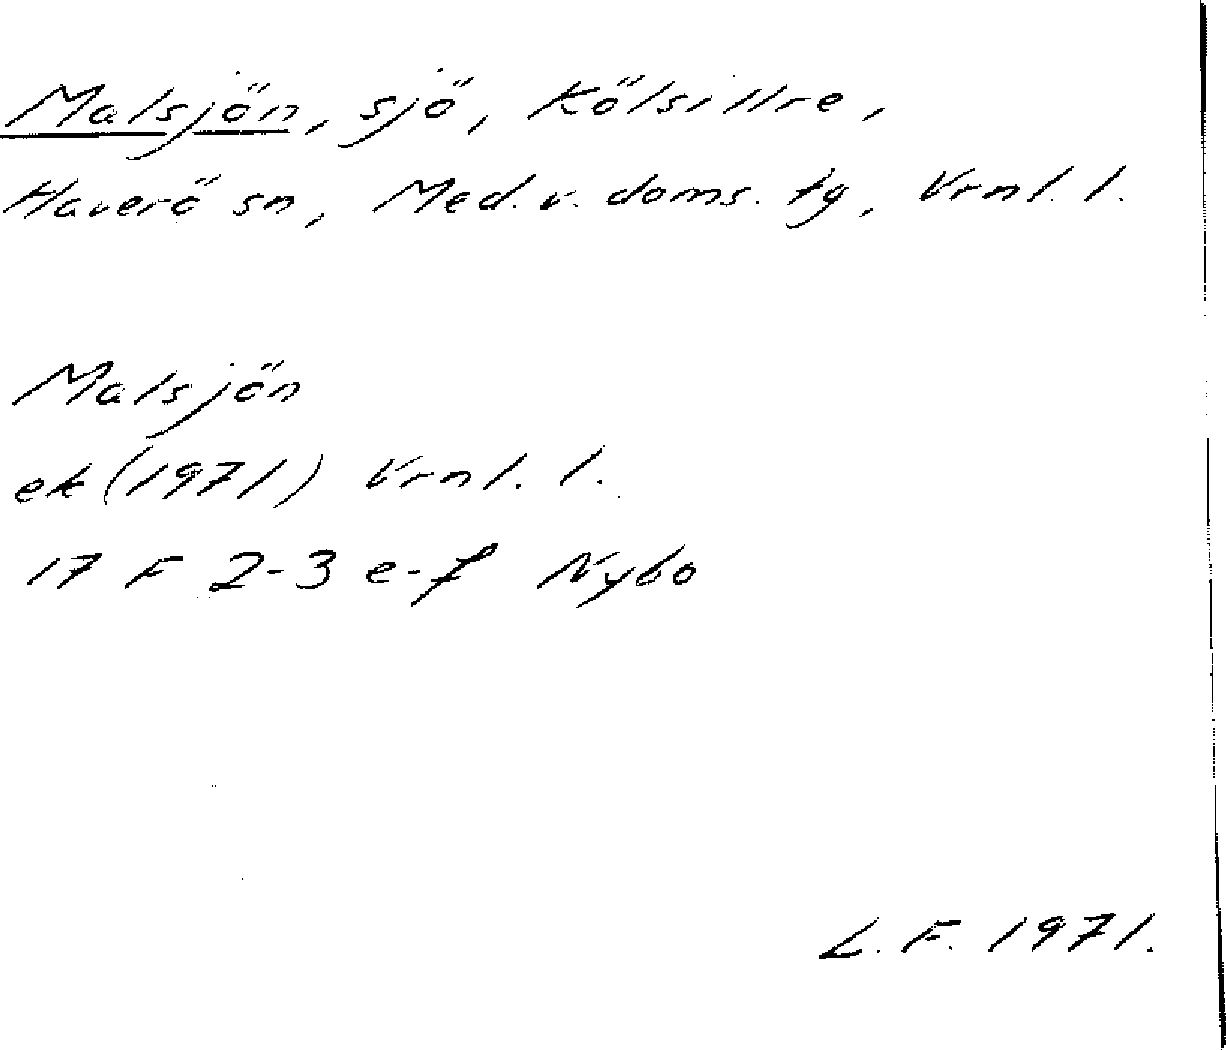 Malsjön, sjö, Kölsillre,
Haverö sn, Med. v. doms. tg, Vrnl. l.
Malsjön
ek (1971) Vrnl. l.
17 F 2-3 e-f Nybo
L. F. 1971.